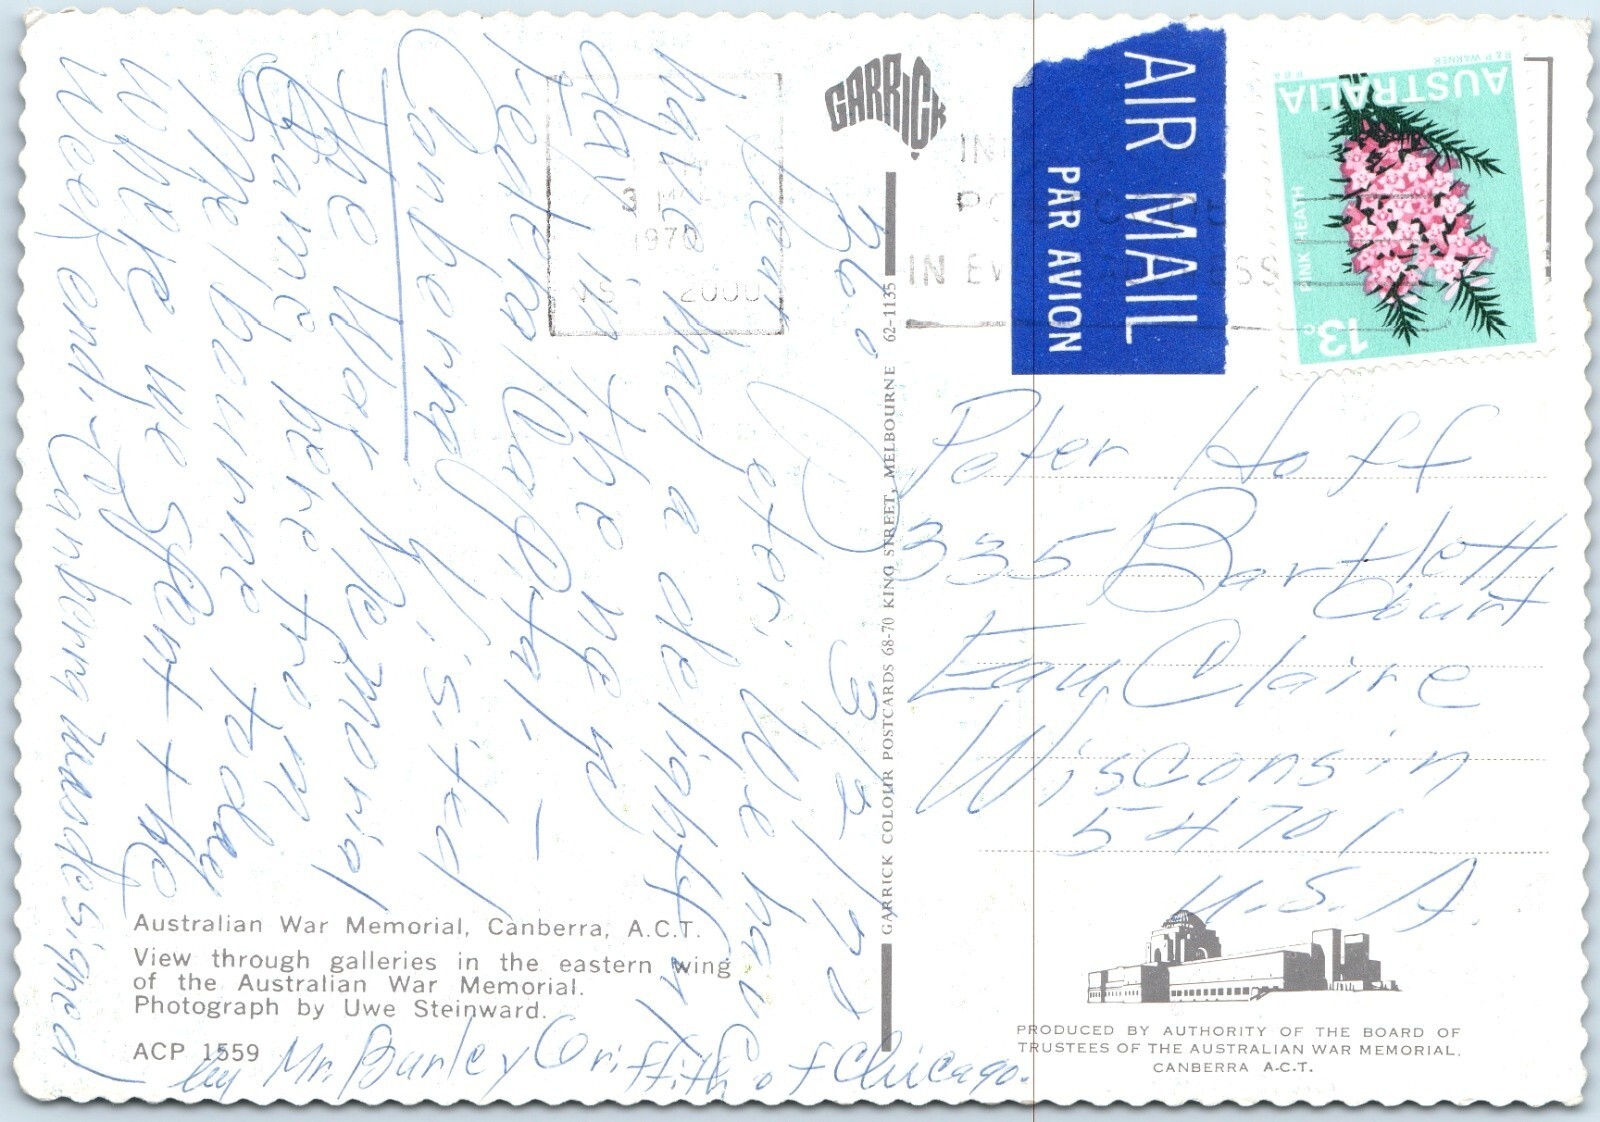 GARRICK
3/2/70
Dear Peter: We have
have had a delightful
day in the
Federal Capital. –
Canberra. Visited
the War Memorial
Came here from
Melbourne today
where we spent the
week end. Canberra was designed
by Mr. Burley Griffith of Chicago.
Australian War Memorial, Canberra, A.C.T.
View through galleries in the eastern wing
of the Australian War Memorial.
Photograph by Uwe Steinward.
ACP 1559
GARRICK COLOUR POSTCARDS 68-70 KING STREET, MELBOURNE 62-1135
1970
2000
AIR MAIL
PAR AVION
AUSTRALIA
PINK HEATH
13c
Peter Hoff
335 Bartlett
Court
Eau Claire
Wisconsin
54701
U.S.A.
PRODUCED BY AUTHORITY OF THE BOARD OF
TRUSTEES OF THE AUSTRALIAN WAR MEMORIAL,
CANBERRA A.C.T.